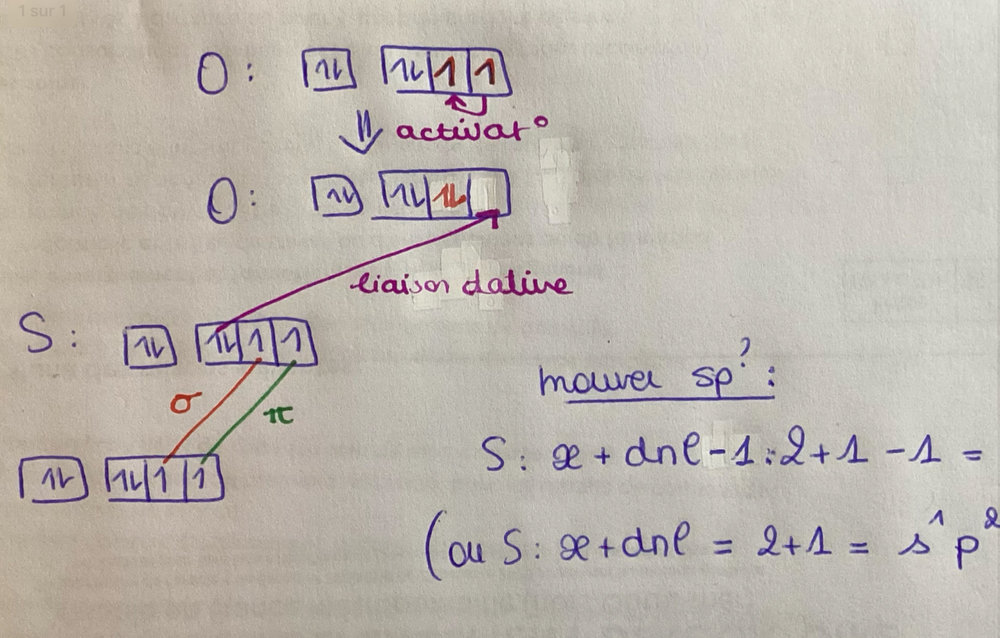 1 sur 1
O : ⥮ ⥮ 1 1
activat°
O : ⥮ ⥮ ⥮
liaison dative
S : ⥮ ⥮ 1 1
σ π
⥮ ⥮ 1 1
sp? :
S : x + dnl - 1 : 2 + 1 - 1 =
(ou S : x + dnl = 2 + 1 = s¹ p²